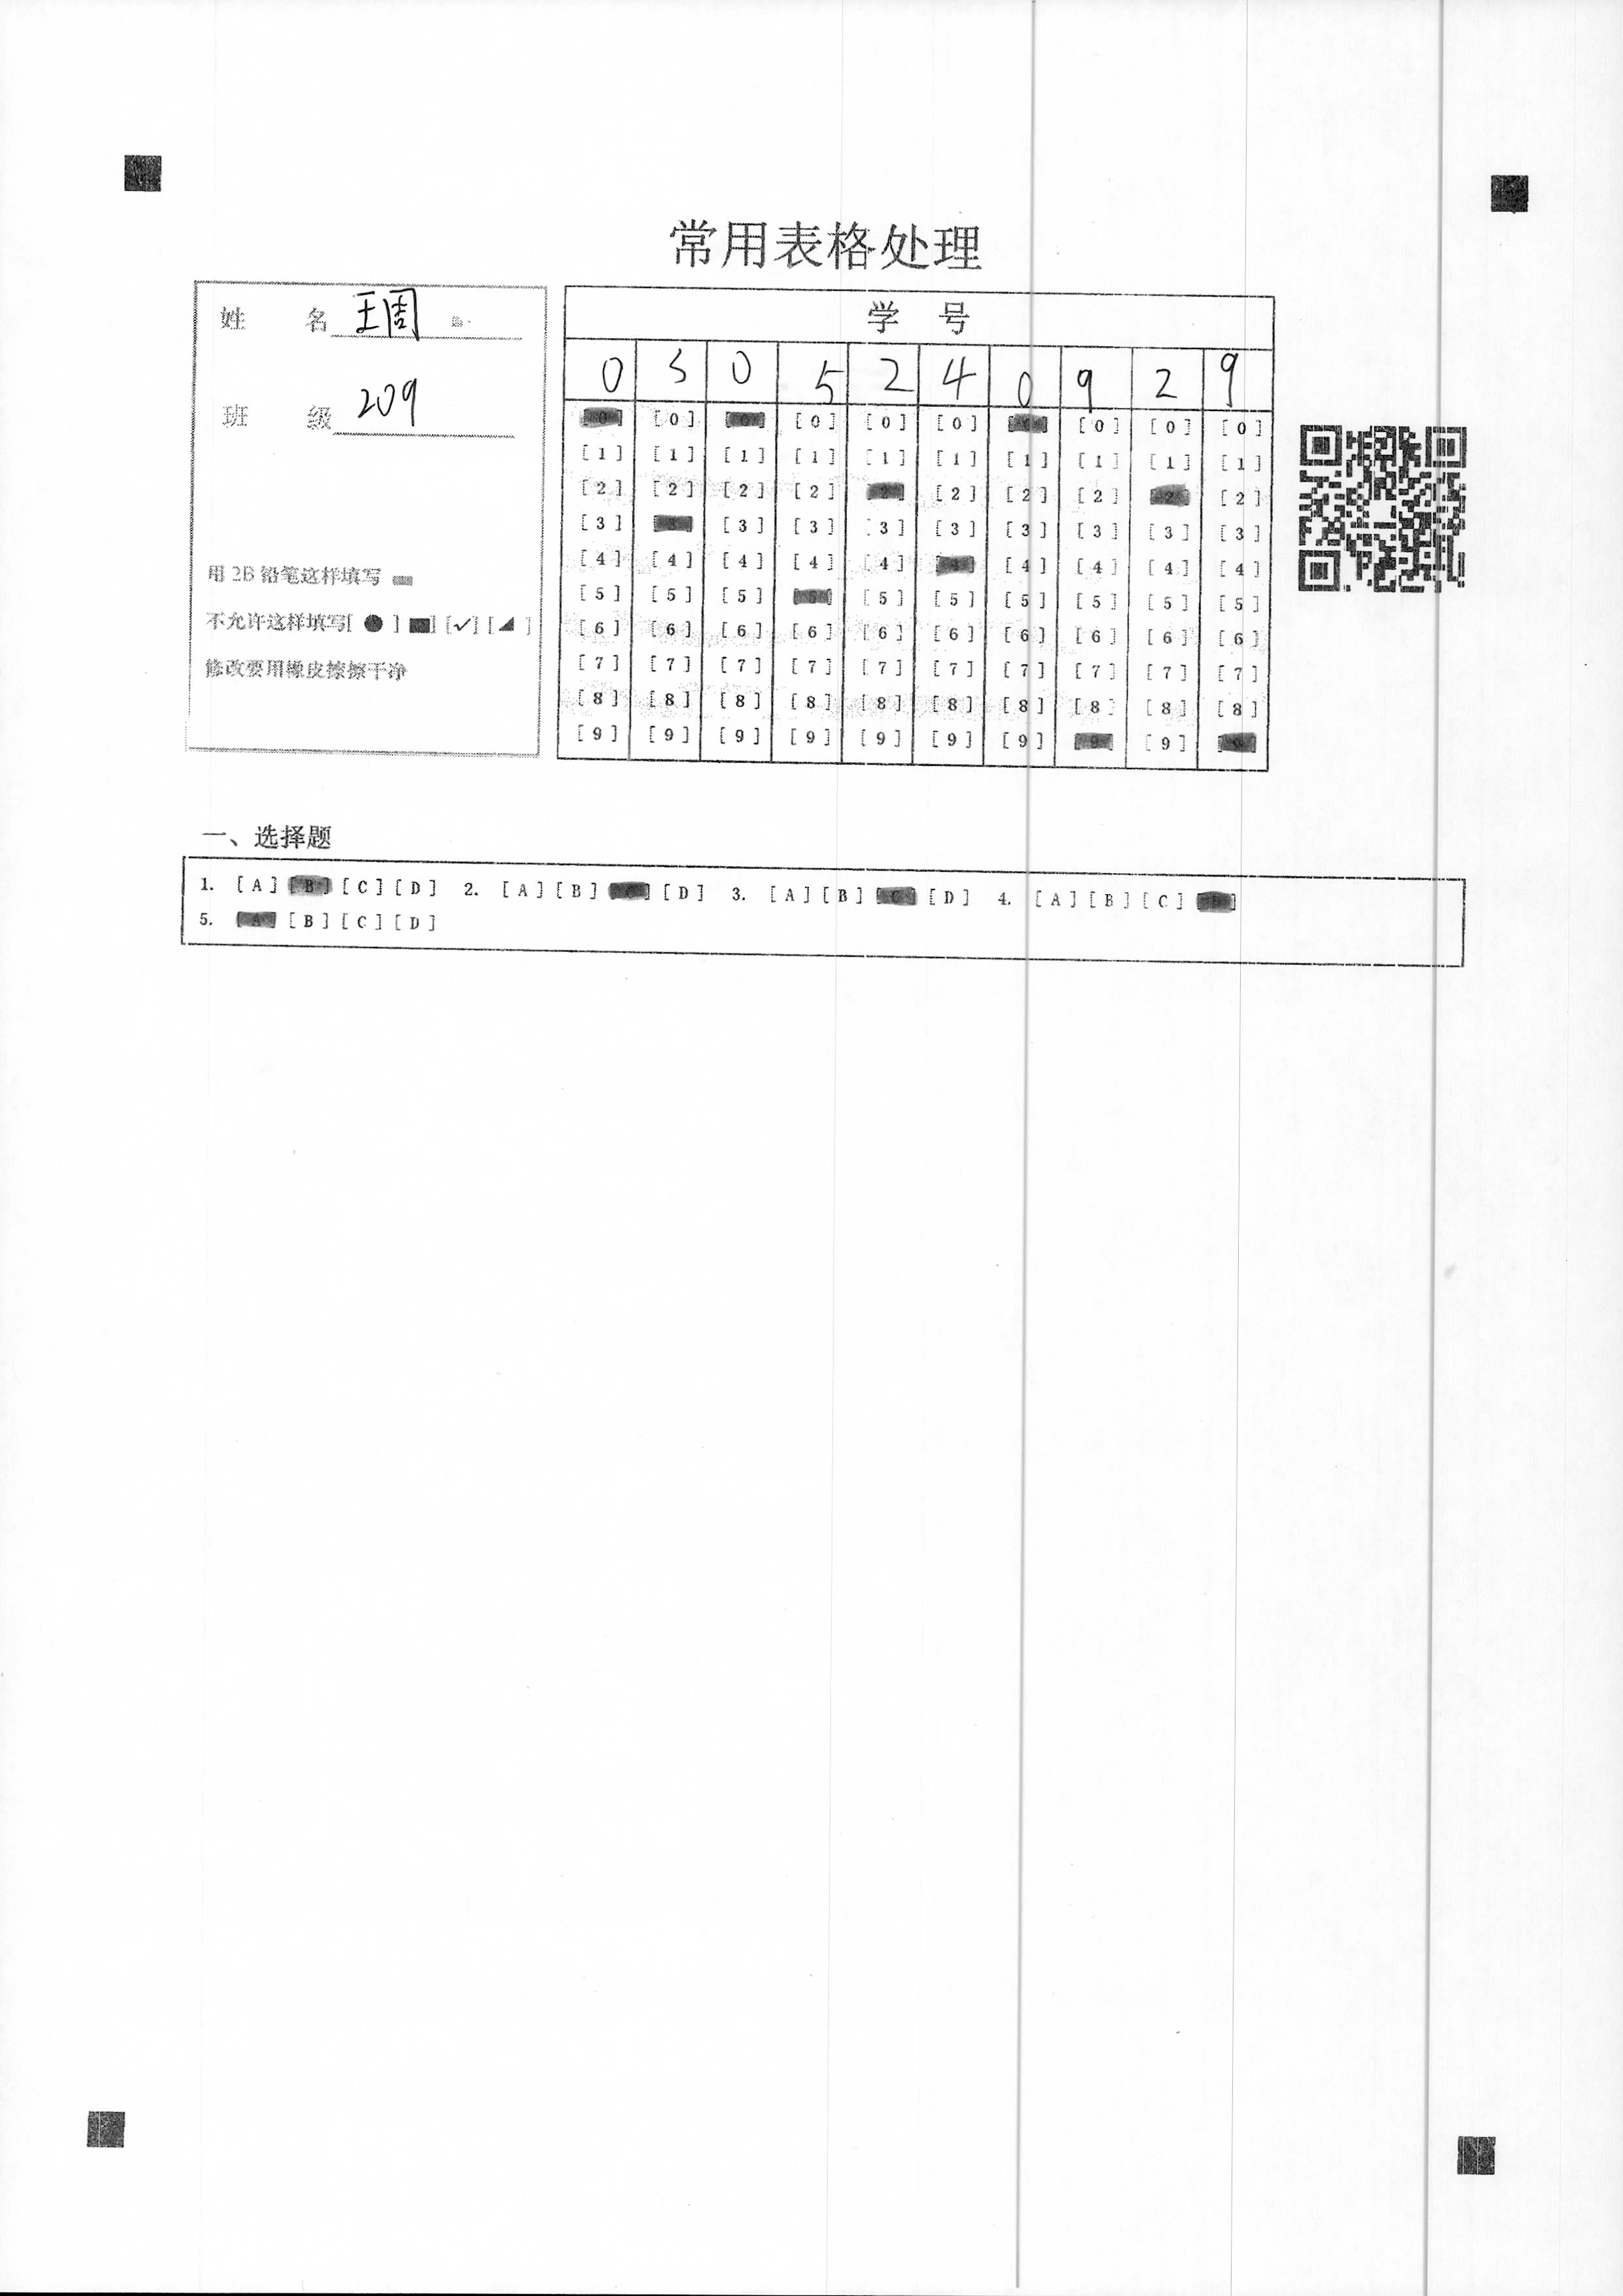 常用表格处理
姓 名 王周
班 级 209
用 2B 铅笔这样填写
不允许这样填写[ ● ] ■] [✓] [◢ ]
修改要用橡皮擦擦干净
学 号
0 3 0 5 2 4 0 9 2 9
[0] [0] [0] [0] [0] [0] [0] [0] [0] [0]
[1] [1] [1] [1] [1] [1] [1] [1] [1] [1]
[2] [2] [2] [2] [2] [2] [2] [2] [2] [2]
[3] [3] [3] [3] [3] [3] [3] [3] [3] [3]
[4] [4] [4] [4] [4] [4] [4] [4] [4] [4]
[5] [5] [5] [5] [5] [5] [5] [5] [5] [5]
[6] [6] [6] [6] [6] [6] [6] [6] [6] [6]
[7] [7] [7] [7] [7] [7] [7] [7] [7] [7]
[8] [8] [8] [8] [8] [8] [8] [8] [8] [8]
[9] [9] [9] [9] [9] [9] [9] [9] [9] [9]
一、选择题
1. [A] [B] [C] [D] 2. [A] [B] [C] [D] 3. [A] [B] [C] [D] 4. [A] [B] [C] [D]
5. [A] [B] [C] [D]